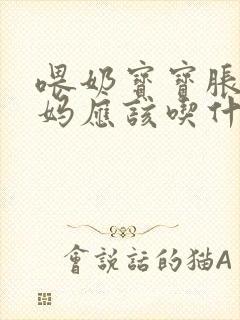 喂奶寶寶脹
媽應該喫什
會說話的猫A